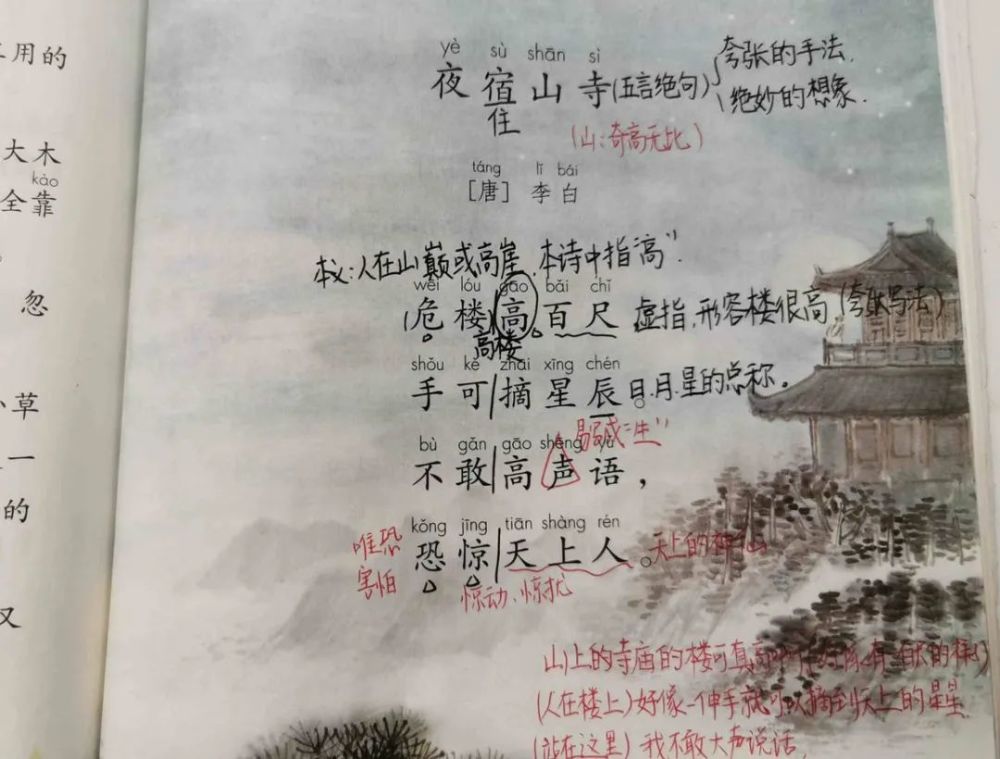 用的
大木
kào
全靠
。
忽
草
一
的
又
yè sù shān sì
夜宿山寺(五言绝句)
夸张的手法.
绝妙的想象.
住
(山:奇高无比)
táng lǐ bái
[唐] 李白
本义:人在山巅或高崖,本诗中指"高".
wēi lóu gāo bǎi chǐ
(危楼)高百尺 虚指,形容楼很高,(夸张写法)
高楼
shǒu kě zhāi xīng chén
手可|摘星辰。日.月.星的总称。
bù gǎn gāo shēng yǔ
不敢|高声语,
易碱"生"
kǒng jīng tiān shàng rén
唯恐
恐惊|天上人。天上的神仙
害怕
惊动、惊扰
山上的寺庙的楼可真高啊,好像有一百尺的样子
(人在楼上)好像一伸手就可以摘到天上的星星
(站在这里)我不敢大声说话,